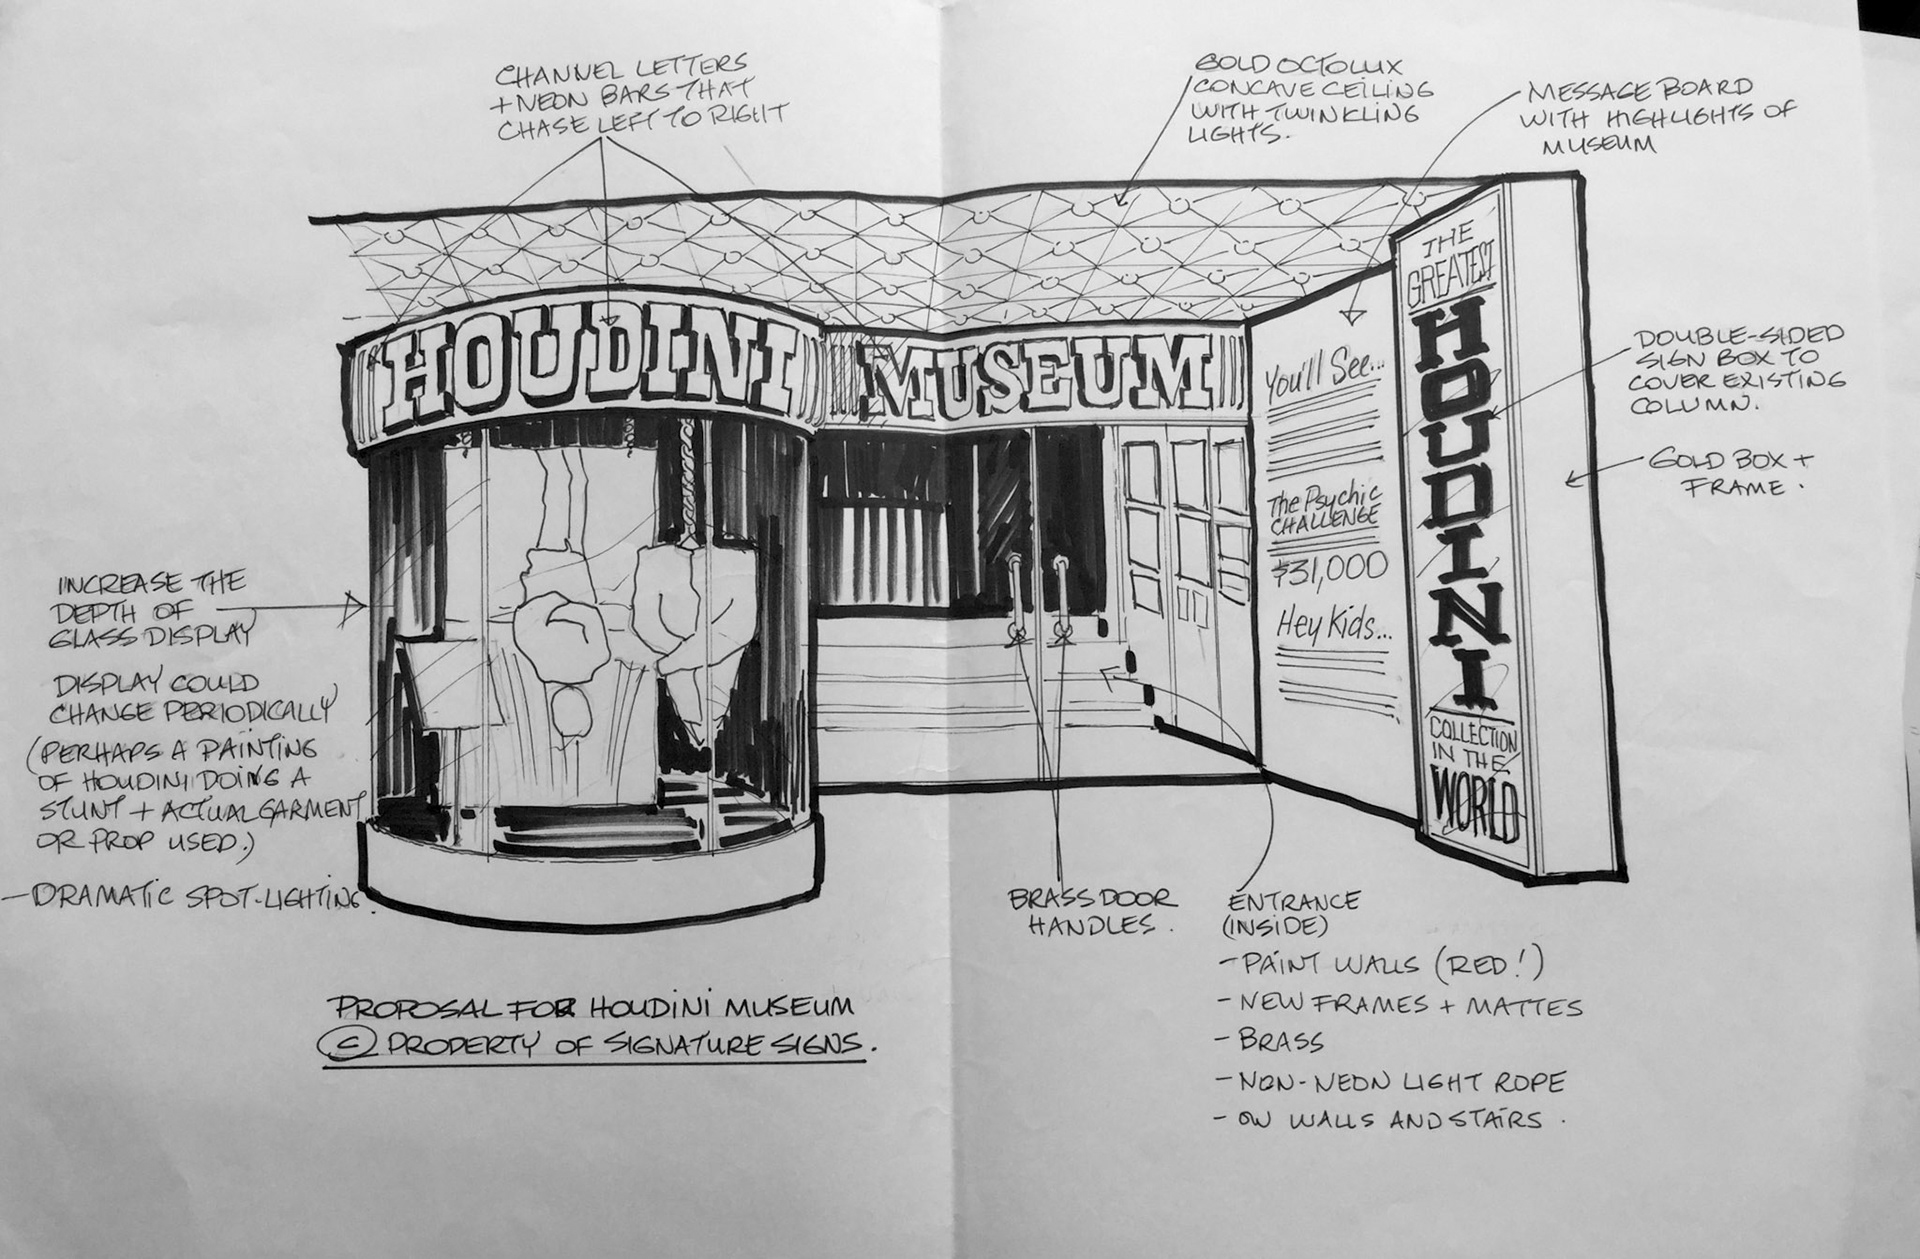 CHANNEL LETTERS
+ NEON BARS THAT
CHASE LEFT TO RIGHT
GOLD OCTOLUX
CONCAVE CEILING
WITH TWINKLING
LIGHTS.
MESSAGE BOARD
WITH HIGHLIGHTS OF
MUSEUM
HOUDINI MUSEUM
You'll See...
The Psychic
CHALLENGE
$31,000
Hey Kids...
THE
GREATEST
HOUDINI
COLLECTION
IN THE
WORLD
DOUBLE-SIDED
SIGN BOX TO
COVER EXISTING
COLUMN.
GOLD BOX +
FRAME.
INCREASE THE
DEPTH OF
GLASS DISPLAY
DISPLAY COULD
CHANGE PERIODICALLY
(PERHAPS A PAINTING
OF HOUDINI DOING A
STUNT + ACTUAL GARMENT
OR PROP USED.)
- DRAMATIC SPOT-LIGHTING.
BRASS DOOR
HANDLES.
ENTRANCE
(INSIDE)
- PAINT WALLS (RED!)
- NEW FRAMES + MATTES
- BRASS
- NON-NEON LIGHT ROPE
- ON WALLS AND STAIRS.
PROPOSAL FOR HOUDINI MUSEUM
© PROPERTY OF SIGNATURE SIGNS.